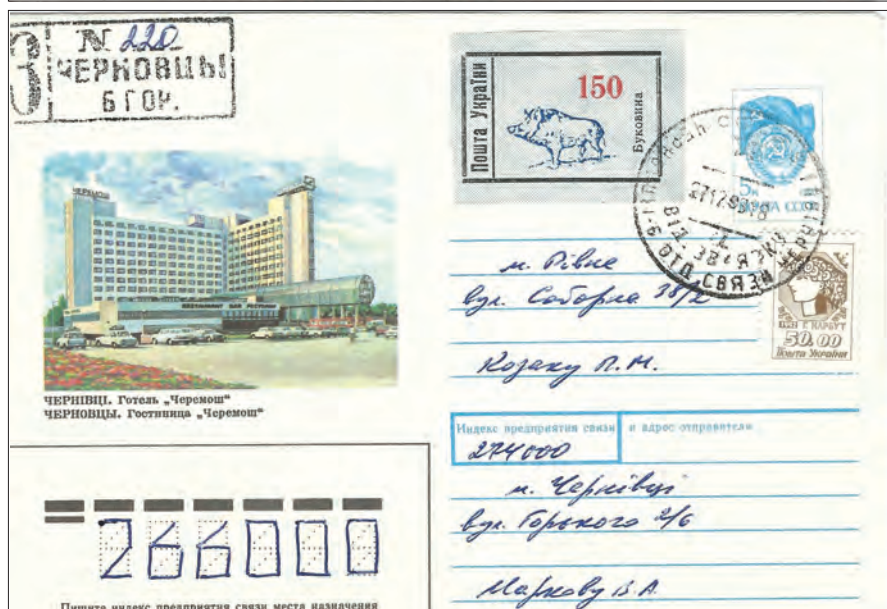 З
N 220
ЧЕРНОВЦЫ
6 ГОР.
Пошта України
150
Буковина
5к
ПОЧТА СССР
ВІД. ЗВ'ЯЗКУ
6 ОТД. СВЯЗИ
Г. НАРБУТ
50.00
Пошта України
ЧЕРЕМОШ
ЧЕРНІВЦІ. Готель „Черемош"
ЧЕРНОВЦЫ. Гостиница „Черемош"
м. Рівне
вул. Соборна 38/2
Козаку П.М.
Индекс предприятия связи и адрес отправителя
274000
м. Чернівці
вул. Горького 2/6
Маркову В.А.
266000
Пишите индекс предприятия связи места назначения